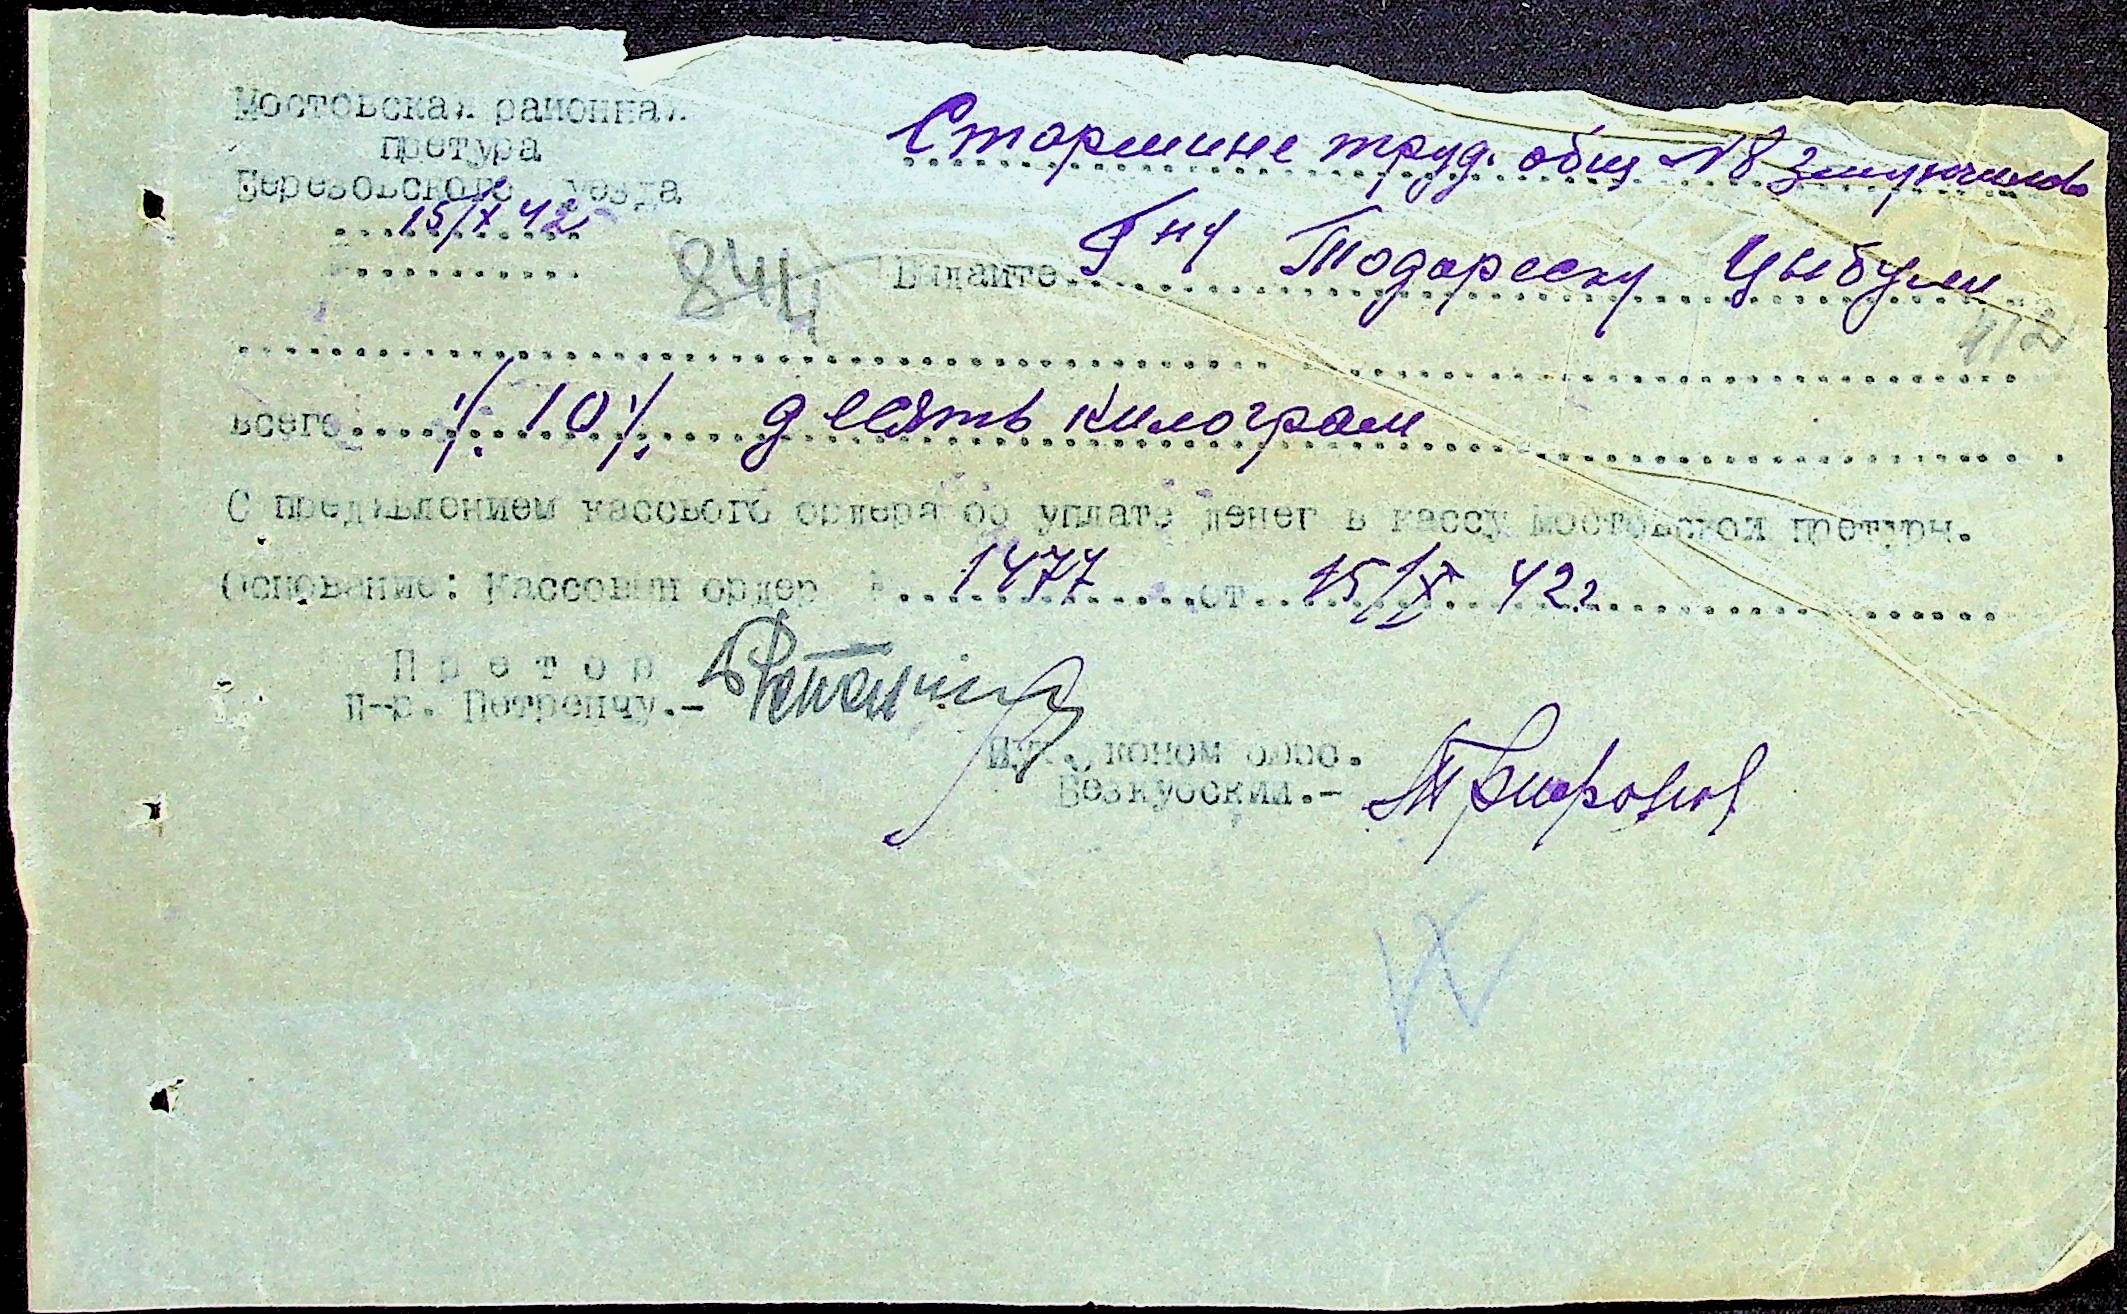 Мостовская районная
претура
Березовского уезда
15/X 42
844
Старшине труд. общ №8
Выдайте Г-ну Тодореску Цыбули
412
всего ./. 10 ./. десять килограм
С предъявлением кассового ордера об уплате денег в кассу Мостовской претуры.
Основание: Кассовый ордер № 1477 от 15/X 42 г.
Претор
П-р. Петренчу.-
эконом бюро.
Безкубский.-